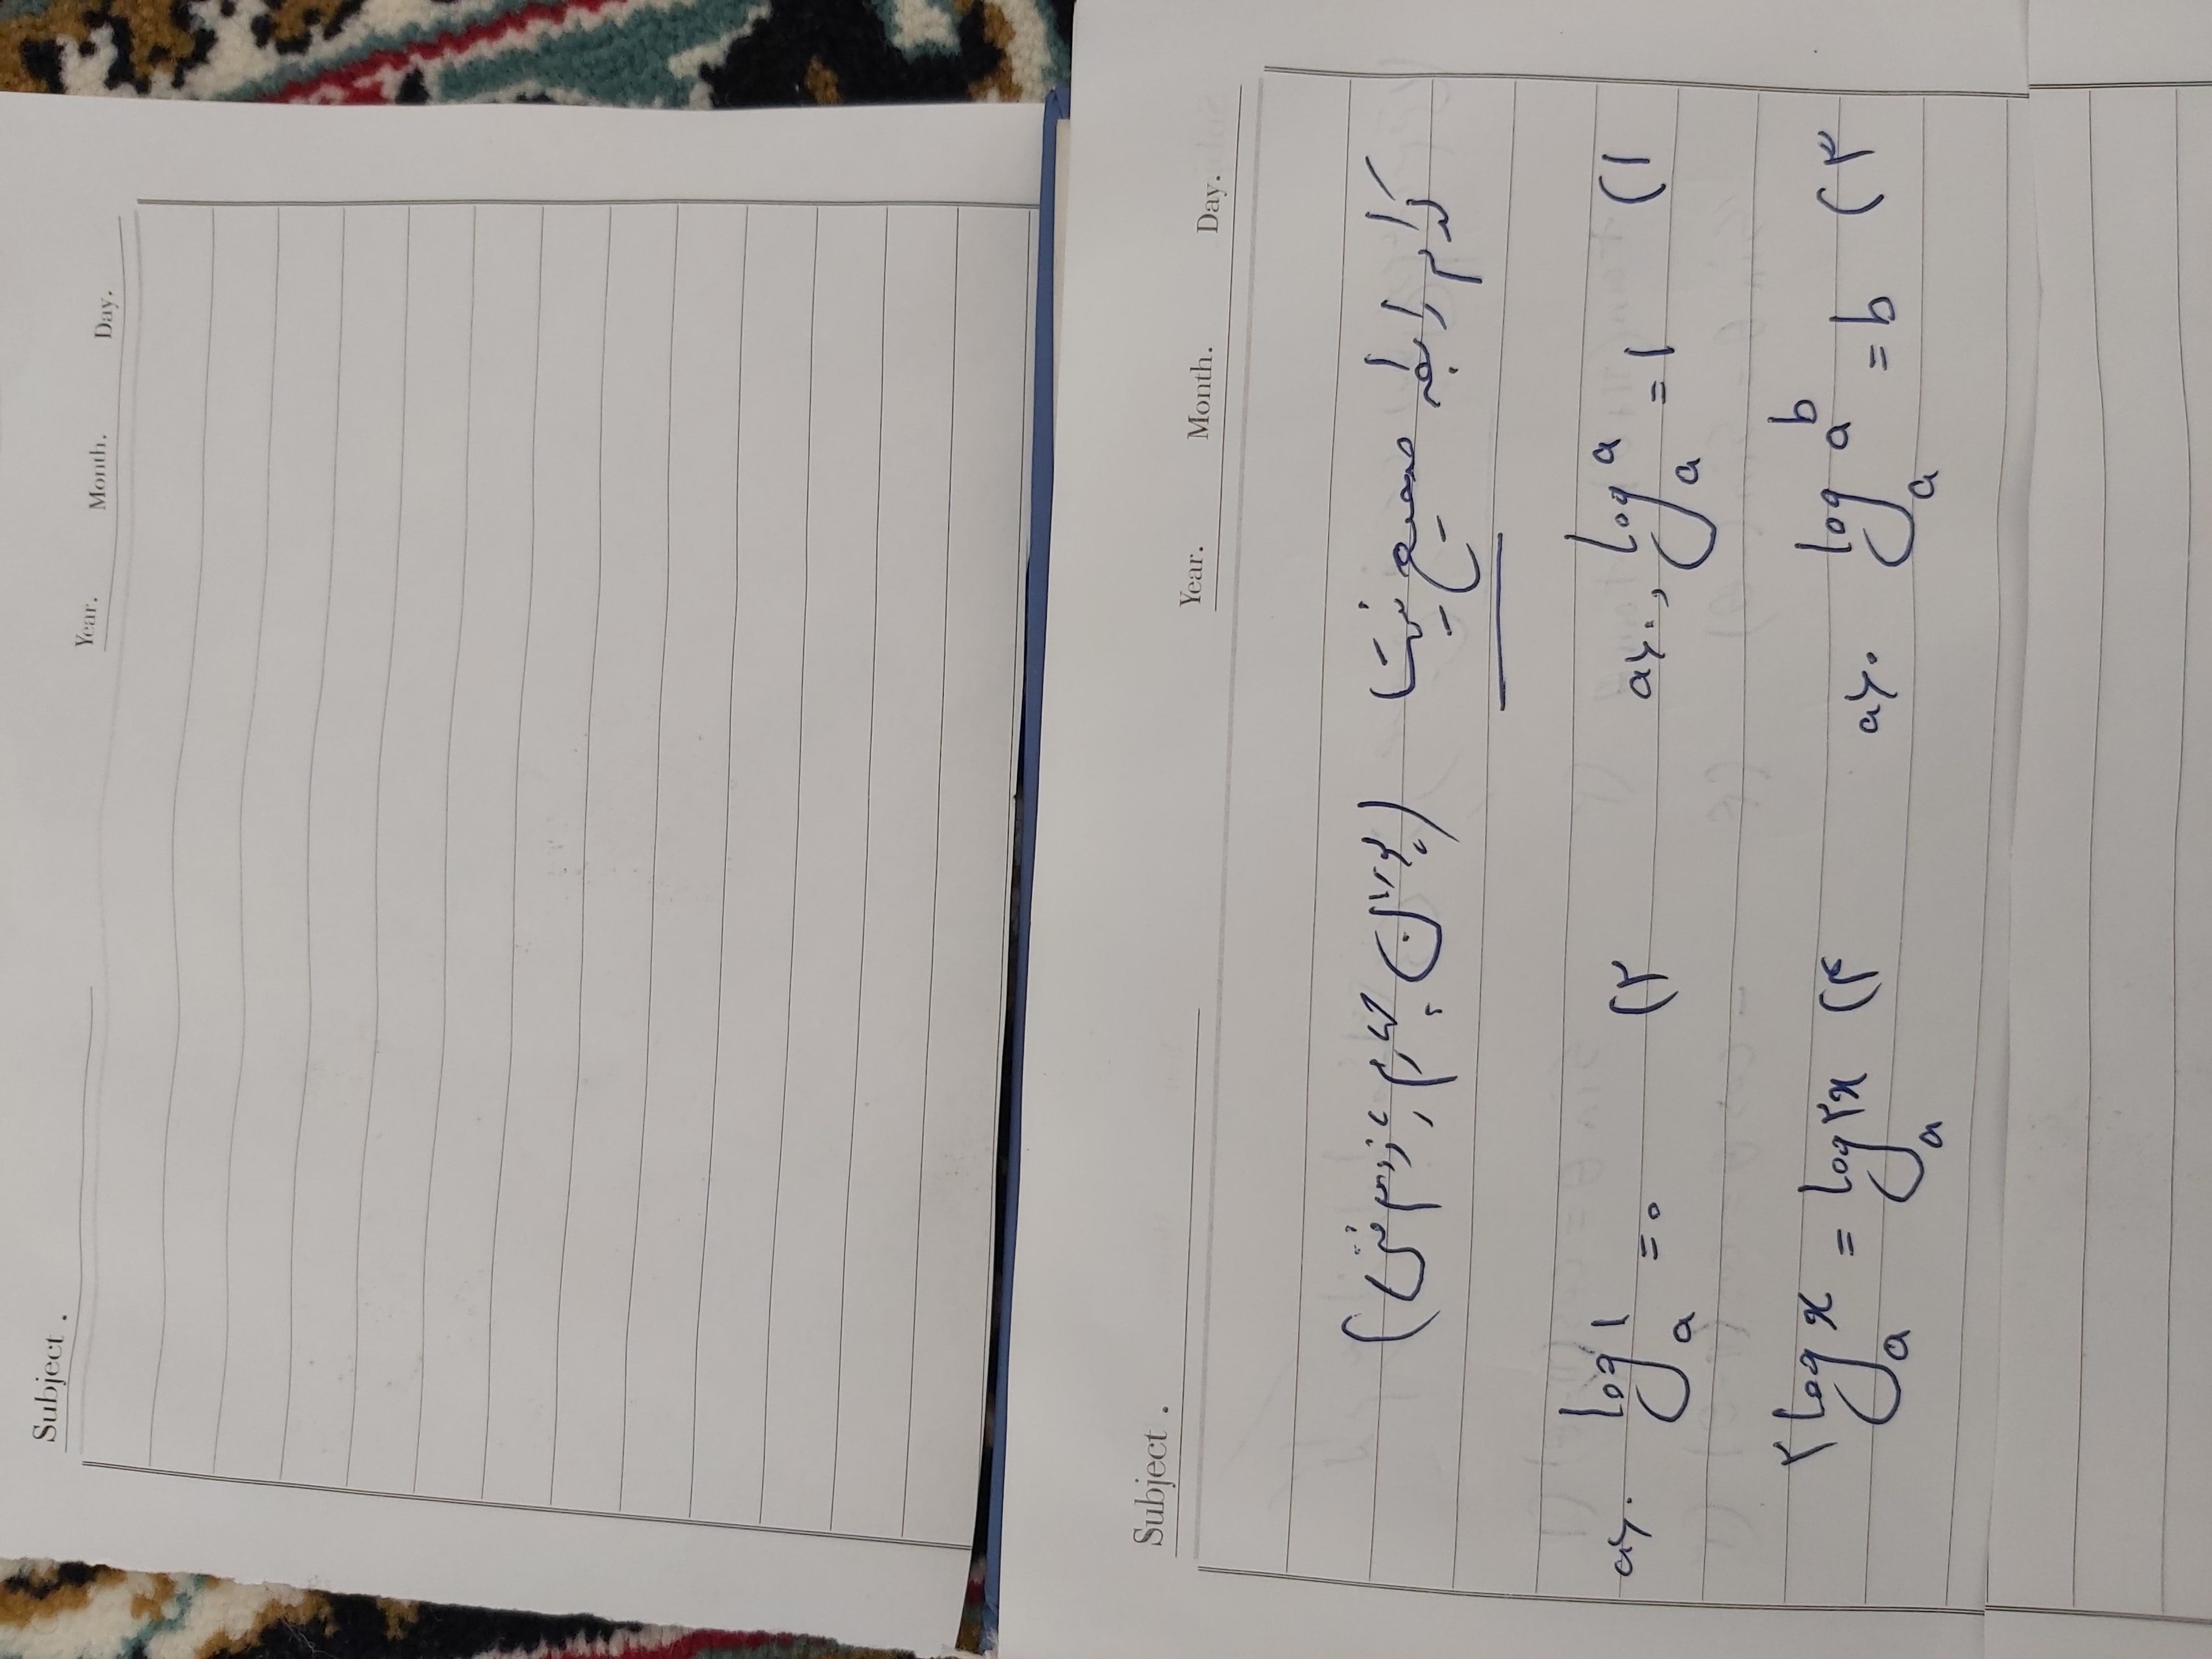 Subject .
Year. Month. Day.
Subject .
Year. Month. Day.
کدام رابطه صحیح نیست (پودمان چهارم یازدهم فنی)
۱) log_a a = ۱ , a>۰ ۲) log_a ۱ = ۰ a>۰
۳) log_a a^b = b a>۰ ۴) ۲log_a x = log_a ۲x